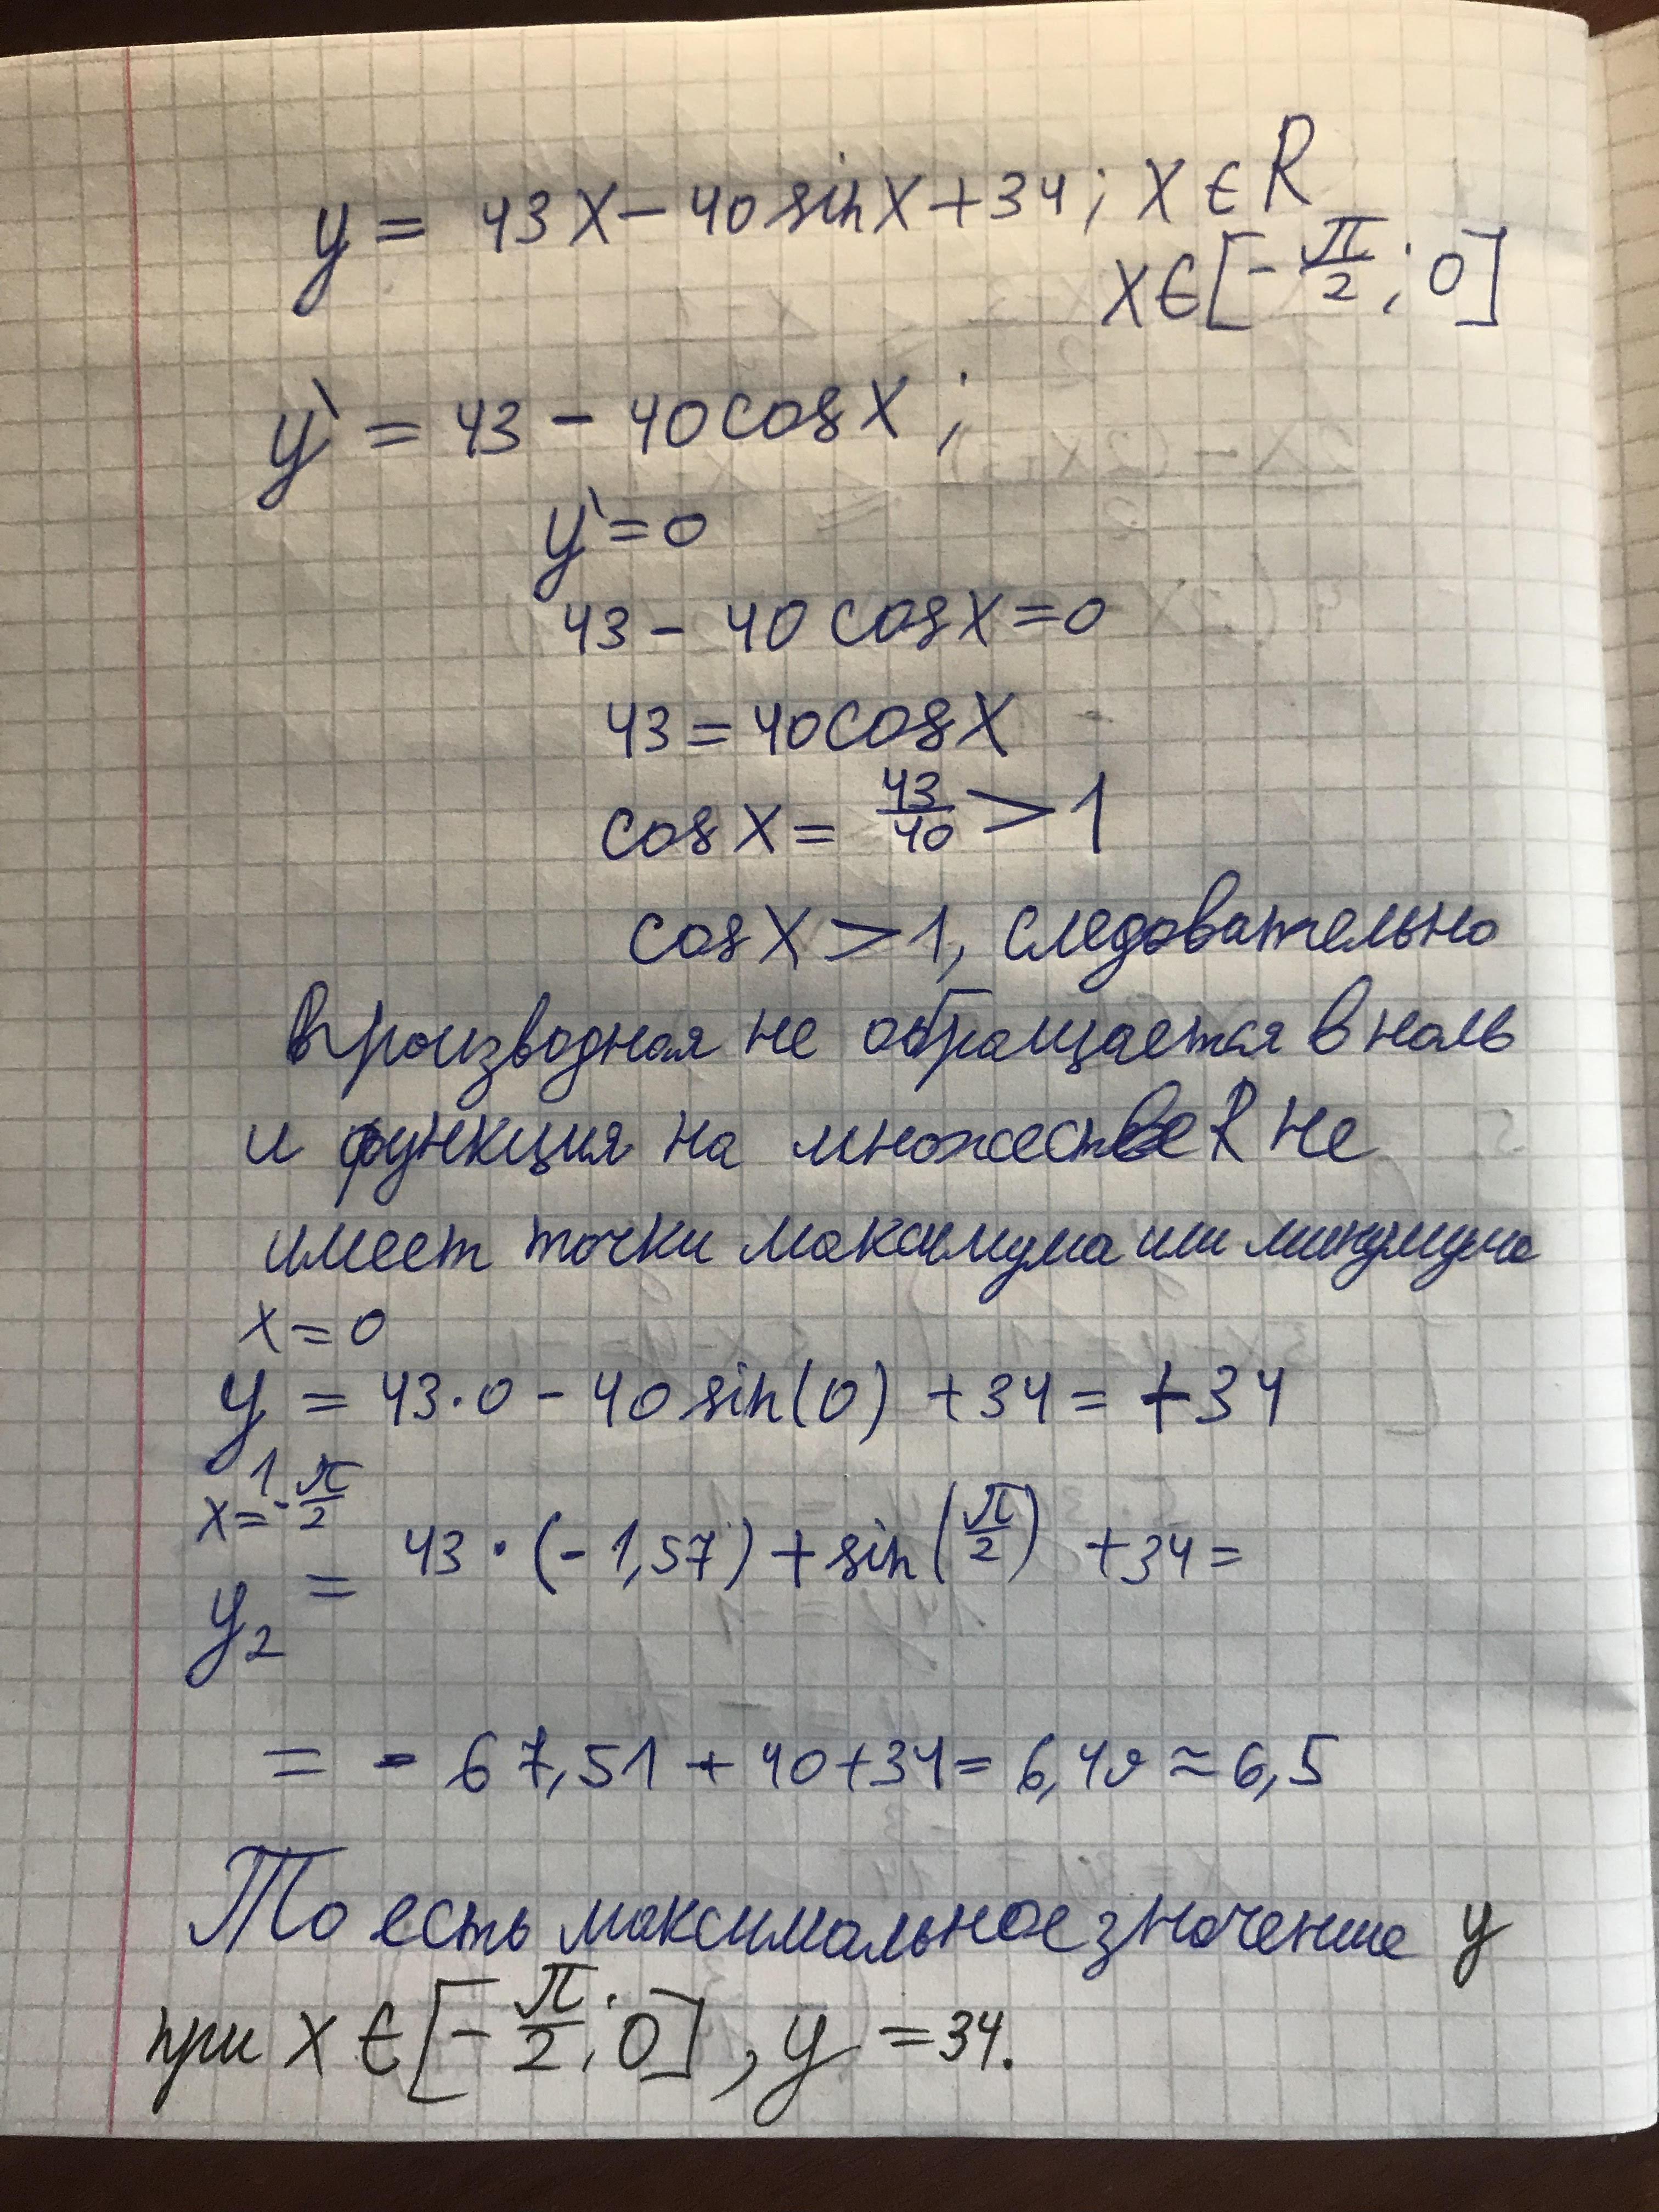 y = 43x - 40 sin x + 34; x ∈ R
x ∈ [-π/2; 0]
y` = 43 - 40 cos x;
y` = 0
43 - 40 cos x = 0
43 = 40 cos x
cos x = 43/40 > 1
cos x > 1, следовательно
производная не обращается в ноль
и функция на множестве R не
имеет точки максимума или минимума
x = 0
y₁ = 43·0 - 40 sin(0) + 34 = +34
x = -π/2
y₂ = 43·(-1,57) + sin(π/2) + 34 =
= - 67,51 + 40 + 34 = 6,49 ≈ 6,5
То есть максимальное значение y
при x ∈ [-π/2; 0], y = 34.